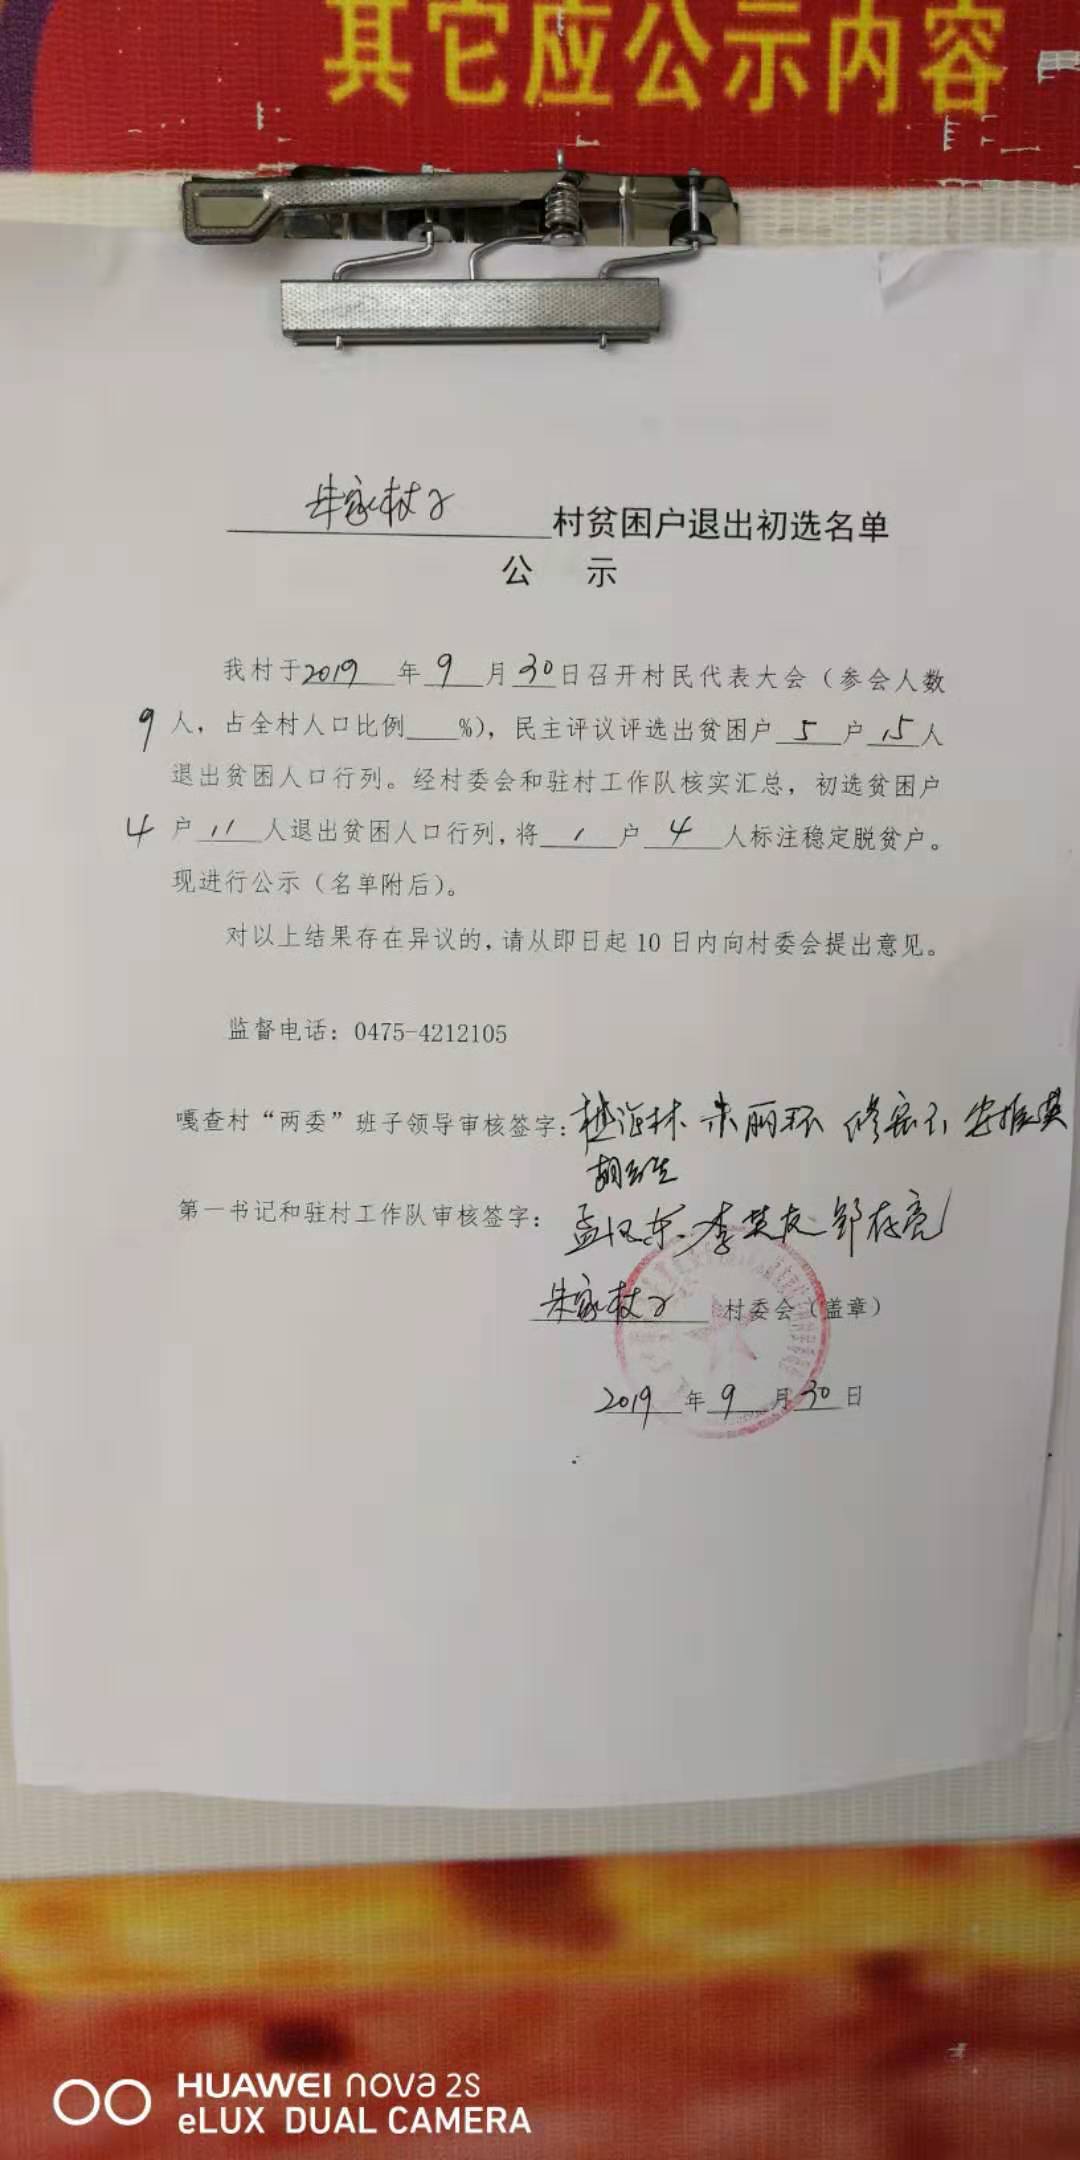 其它应公示内容
朱家杖子村贫困户退出初选名单
公 示
我村于2019年9月30日召开村民代表大会（参会人数
9人，占全村人口比例____%），民主评议评选出贫困户5户15人
退出贫困人口行列。经村委会和驻村工作队核实汇总，初选贫困户
4户11人退出贫困人口行列，将1户4人标注稳定脱贫户。
现进行公示（名单附后）。
对以上结果存在异议的，请从即日起10日内向村委会提出意见。
监督电话：0475-4212105
嘎查村“两委”班子领导审核签字：朱丽环
第一书记和驻村工作队审核签字：李英友 邹存亮
朱家杖子村委会（盖章）
2019年9月30日
HUAWEI nova 2S
eLUX DUAL CAMERA